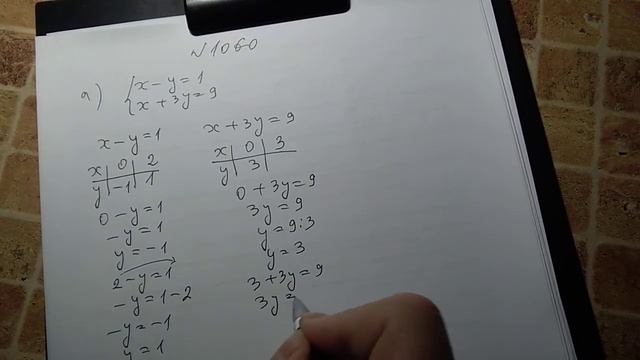 N1060
а) { x - y = 1
x + 3y = 9
x - y = 1
x | 0 | 2
y | -1 | 1
0 - y = 1
-y = 1
y = -1
2 - y = 1
-y = 1 - 2
-y = -1
y = 1
x + 3y = 9
x | 0 | 3
y | 3 |
0 + 3y = 9
3y = 9
y = 9:3
y = 3
3 + 3y = 9
3y =